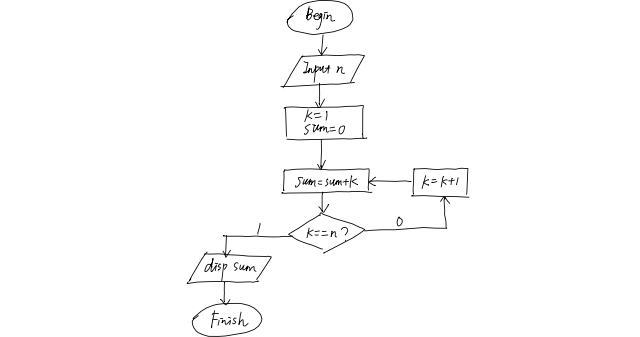 Begin
Input n
k=1
sum=0
sum=sum+k
k=k+1
k==n?
1
0
disp sum
Finish